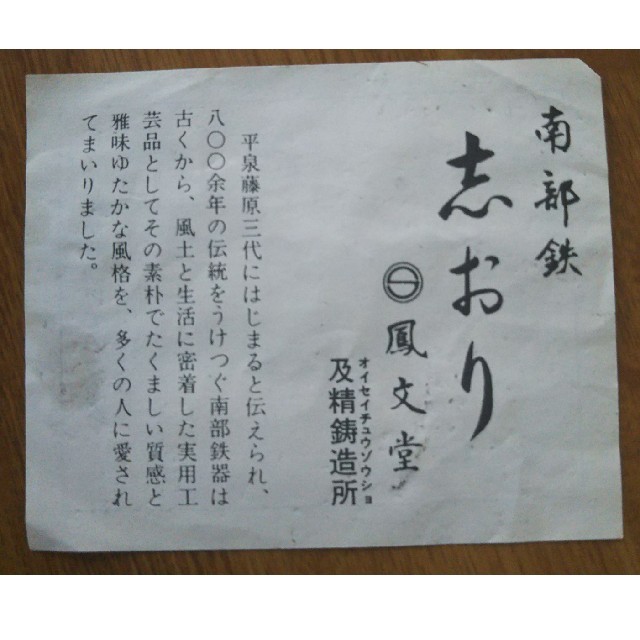 南部鉄
志おり
鳳文堂
オイセイチュウゾウショ
及精鋳造所
平泉藤原三代にはじまると伝えられ、
八〇〇余年の伝統をうけつぐ南部鉄器は
古くから、風土と生活に密着した実用工
芸品としてその素朴でたくましい質感と
雅味ゆたかな風格を、多くの人に愛され
てまいりました。